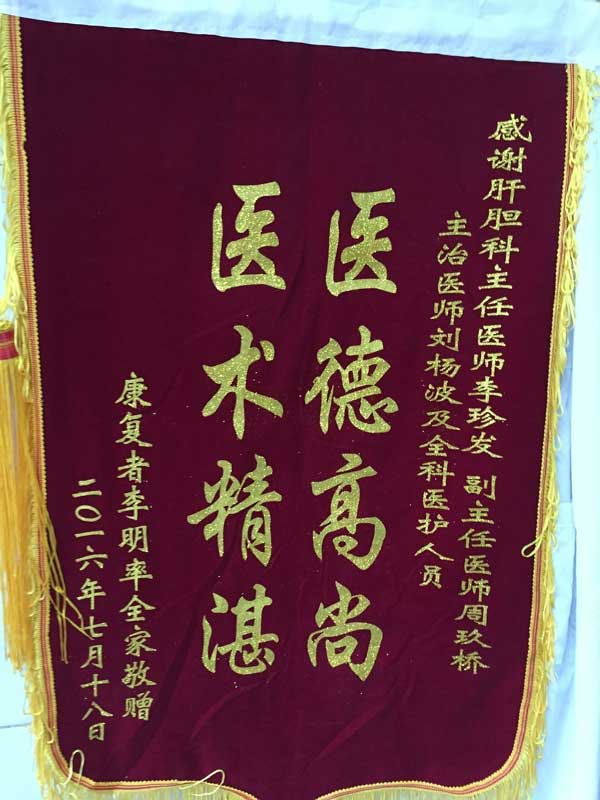 感谢肝胆科主任医师李珍发 副主任医师周玖桥
主治医师刘杨波及全科医护人员
医德高尚
医术精湛
康复者李明率全家敬赠
二〇一六年七月十八日